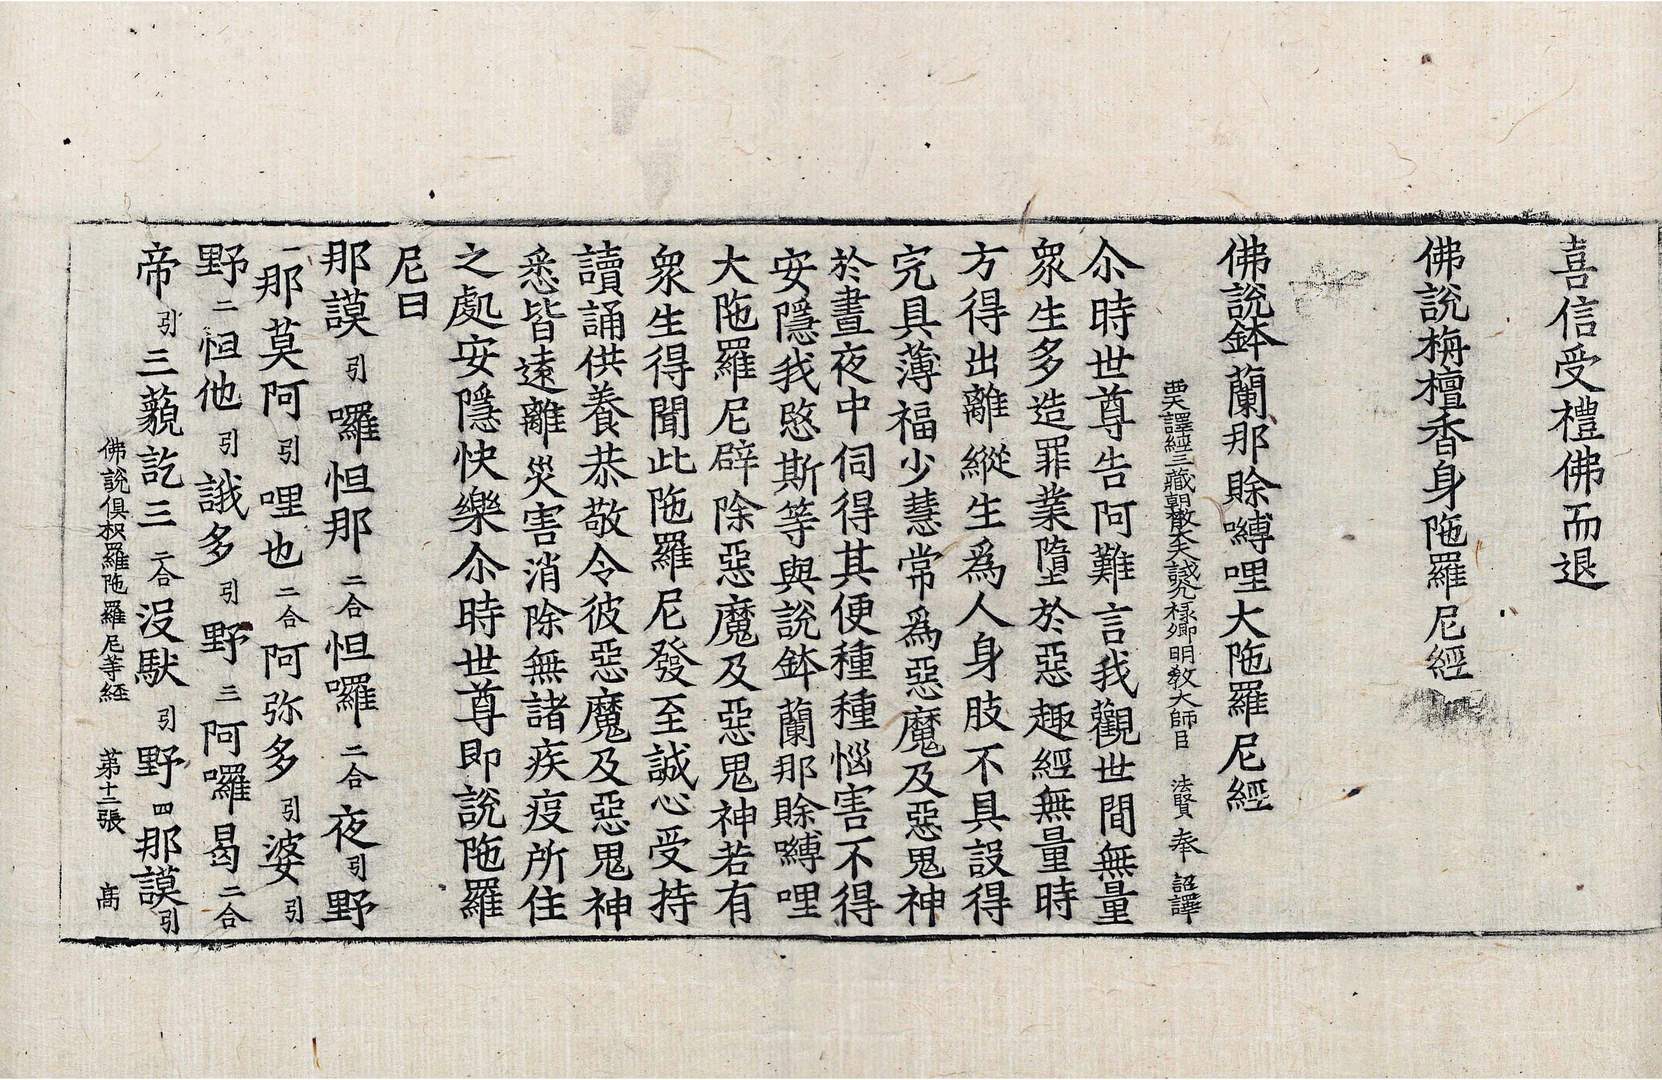 喜信受禮佛而退
佛說栴檀香身陁羅尼經
佛說鉢蘭那賒嚩哩大陁羅尼經
西天譯經三藏朝散大夫試光祿卿明敎大師臣 法賢 奉 詔譯
尒時世尊告阿難言我觀世間無量
衆生多造罪業墮於惡趣經無量時
方得出離縱生爲人身肢不具設得
完具薄福少慧常爲惡魔及惡鬼神
於晝夜中伺得其便種種惱害不得
安隱我愍斯等與說鉢蘭那賒嚩哩
大陁羅尼辟除惡魔及惡鬼神若有
衆生得聞此陁羅尼發至誠心受持
讀誦供養恭敬令彼惡魔及惡鬼神
悉皆遠離災害消除無諸疾疫所住
之處安隱快樂尒時世尊即說陁羅
尼曰
那謨引囉怛那二合怛囉二合夜引野
一那莫阿引哩也二合阿弥多引婆引
野二怛他引誐多引野三阿囉曷二合
帝引三藐訖三二合沒馱引野四那謨引
佛說俱枳羅陁羅尼等經 第十二張 高